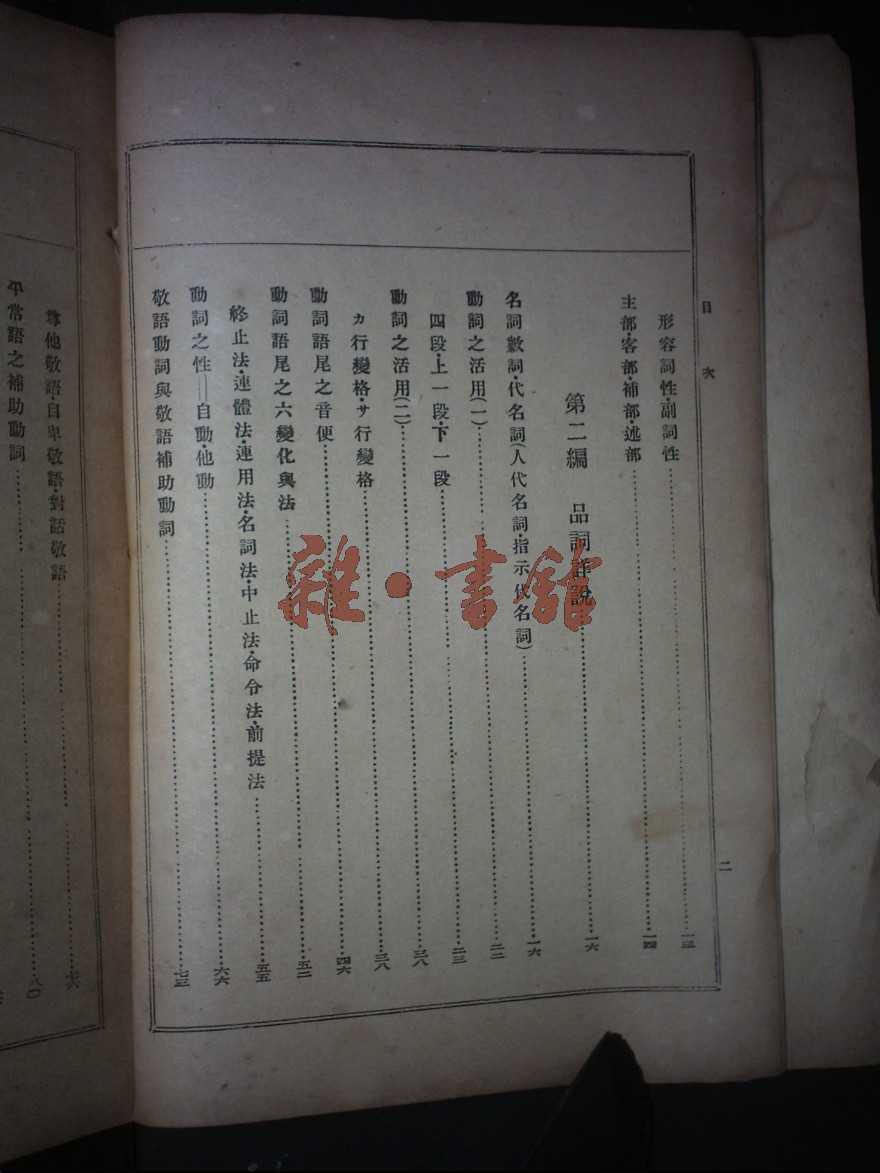 目次
二
形容詞性·副詞性……一三
主部·客部·補部·述部……一四
第二編 品詞詳說……一六
名詞數詞·代名詞(人代名詞·指示代名詞)……一六
動詞之活用(一)……二二
四段·上一段·下一段……二三
動詞之活用(二)……三八
カ行變格·サ行變格……三八
動詞語尾之音便……四六
動詞語尾之六變化與法……五二
終止法·連體法·連用法·名詞法·中止法·命令法·前提法……五五
動詞之性——自動·他動……六六
敬語動詞與敬語補助動詞……七三
尊他敬語·自卑敬語·對話敬語……七六
平常語之補助動詞……八〇
雜·書館